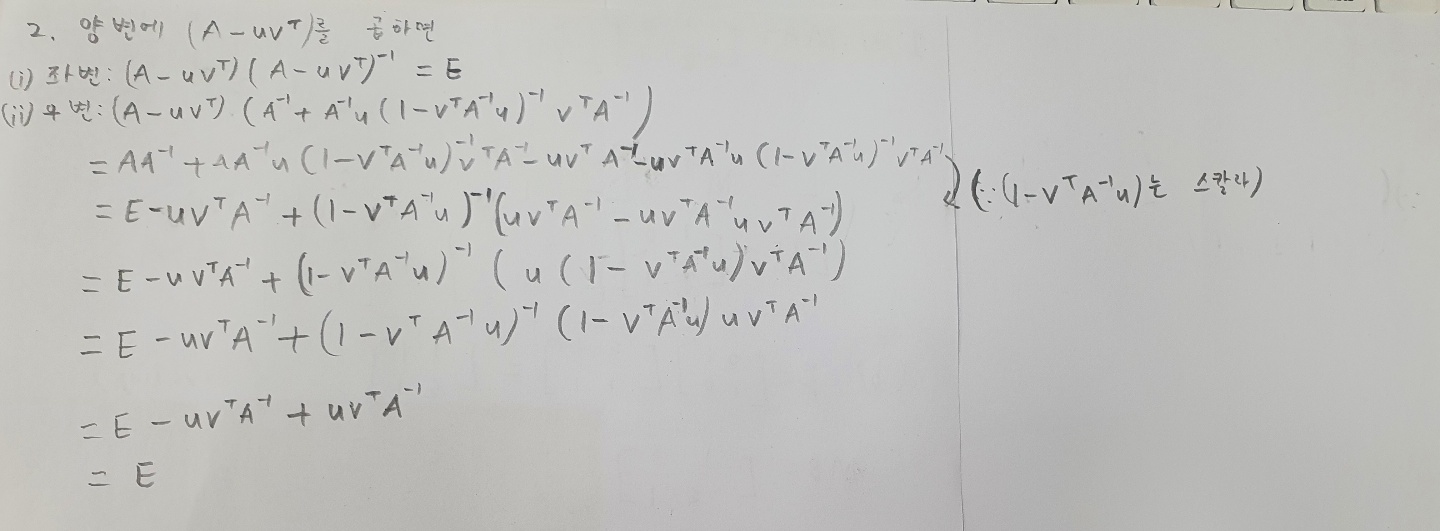 2. 양변에 (A-uvᵀ)를 곱하면
(i) 좌변: (A-uvᵀ)(A-uvᵀ)⁻¹ = E
(ii) 우변: (A-uvᵀ)(A⁻¹+A⁻¹u(1-vᵀA⁻¹u)⁻¹vᵀA⁻¹)
= AA⁻¹+AA⁻¹u(1-vᵀA⁻¹u)⁻¹vᵀA⁻¹-uvᵀA⁻¹-uvᵀA⁻¹u(1-vᵀA⁻¹u)⁻¹vᵀA⁻¹
= E-uvᵀA⁻¹+(1-vᵀA⁻¹u)⁻¹(uvᵀA⁻¹-uvᵀA⁻¹uvᵀA⁻¹) (∵(1-vᵀA⁻¹u)는 스칼라)
= E-uvᵀA⁻¹+(1-vᵀA⁻¹u)⁻¹(u(1-vᵀA⁻¹u)vᵀA⁻¹)
= E-uvᵀA⁻¹+(1-vᵀA⁻¹u)⁻¹(1-vᵀA⁻¹u)uvᵀA⁻¹
= E-uvᵀA⁻¹+uvᵀA⁻¹
= E